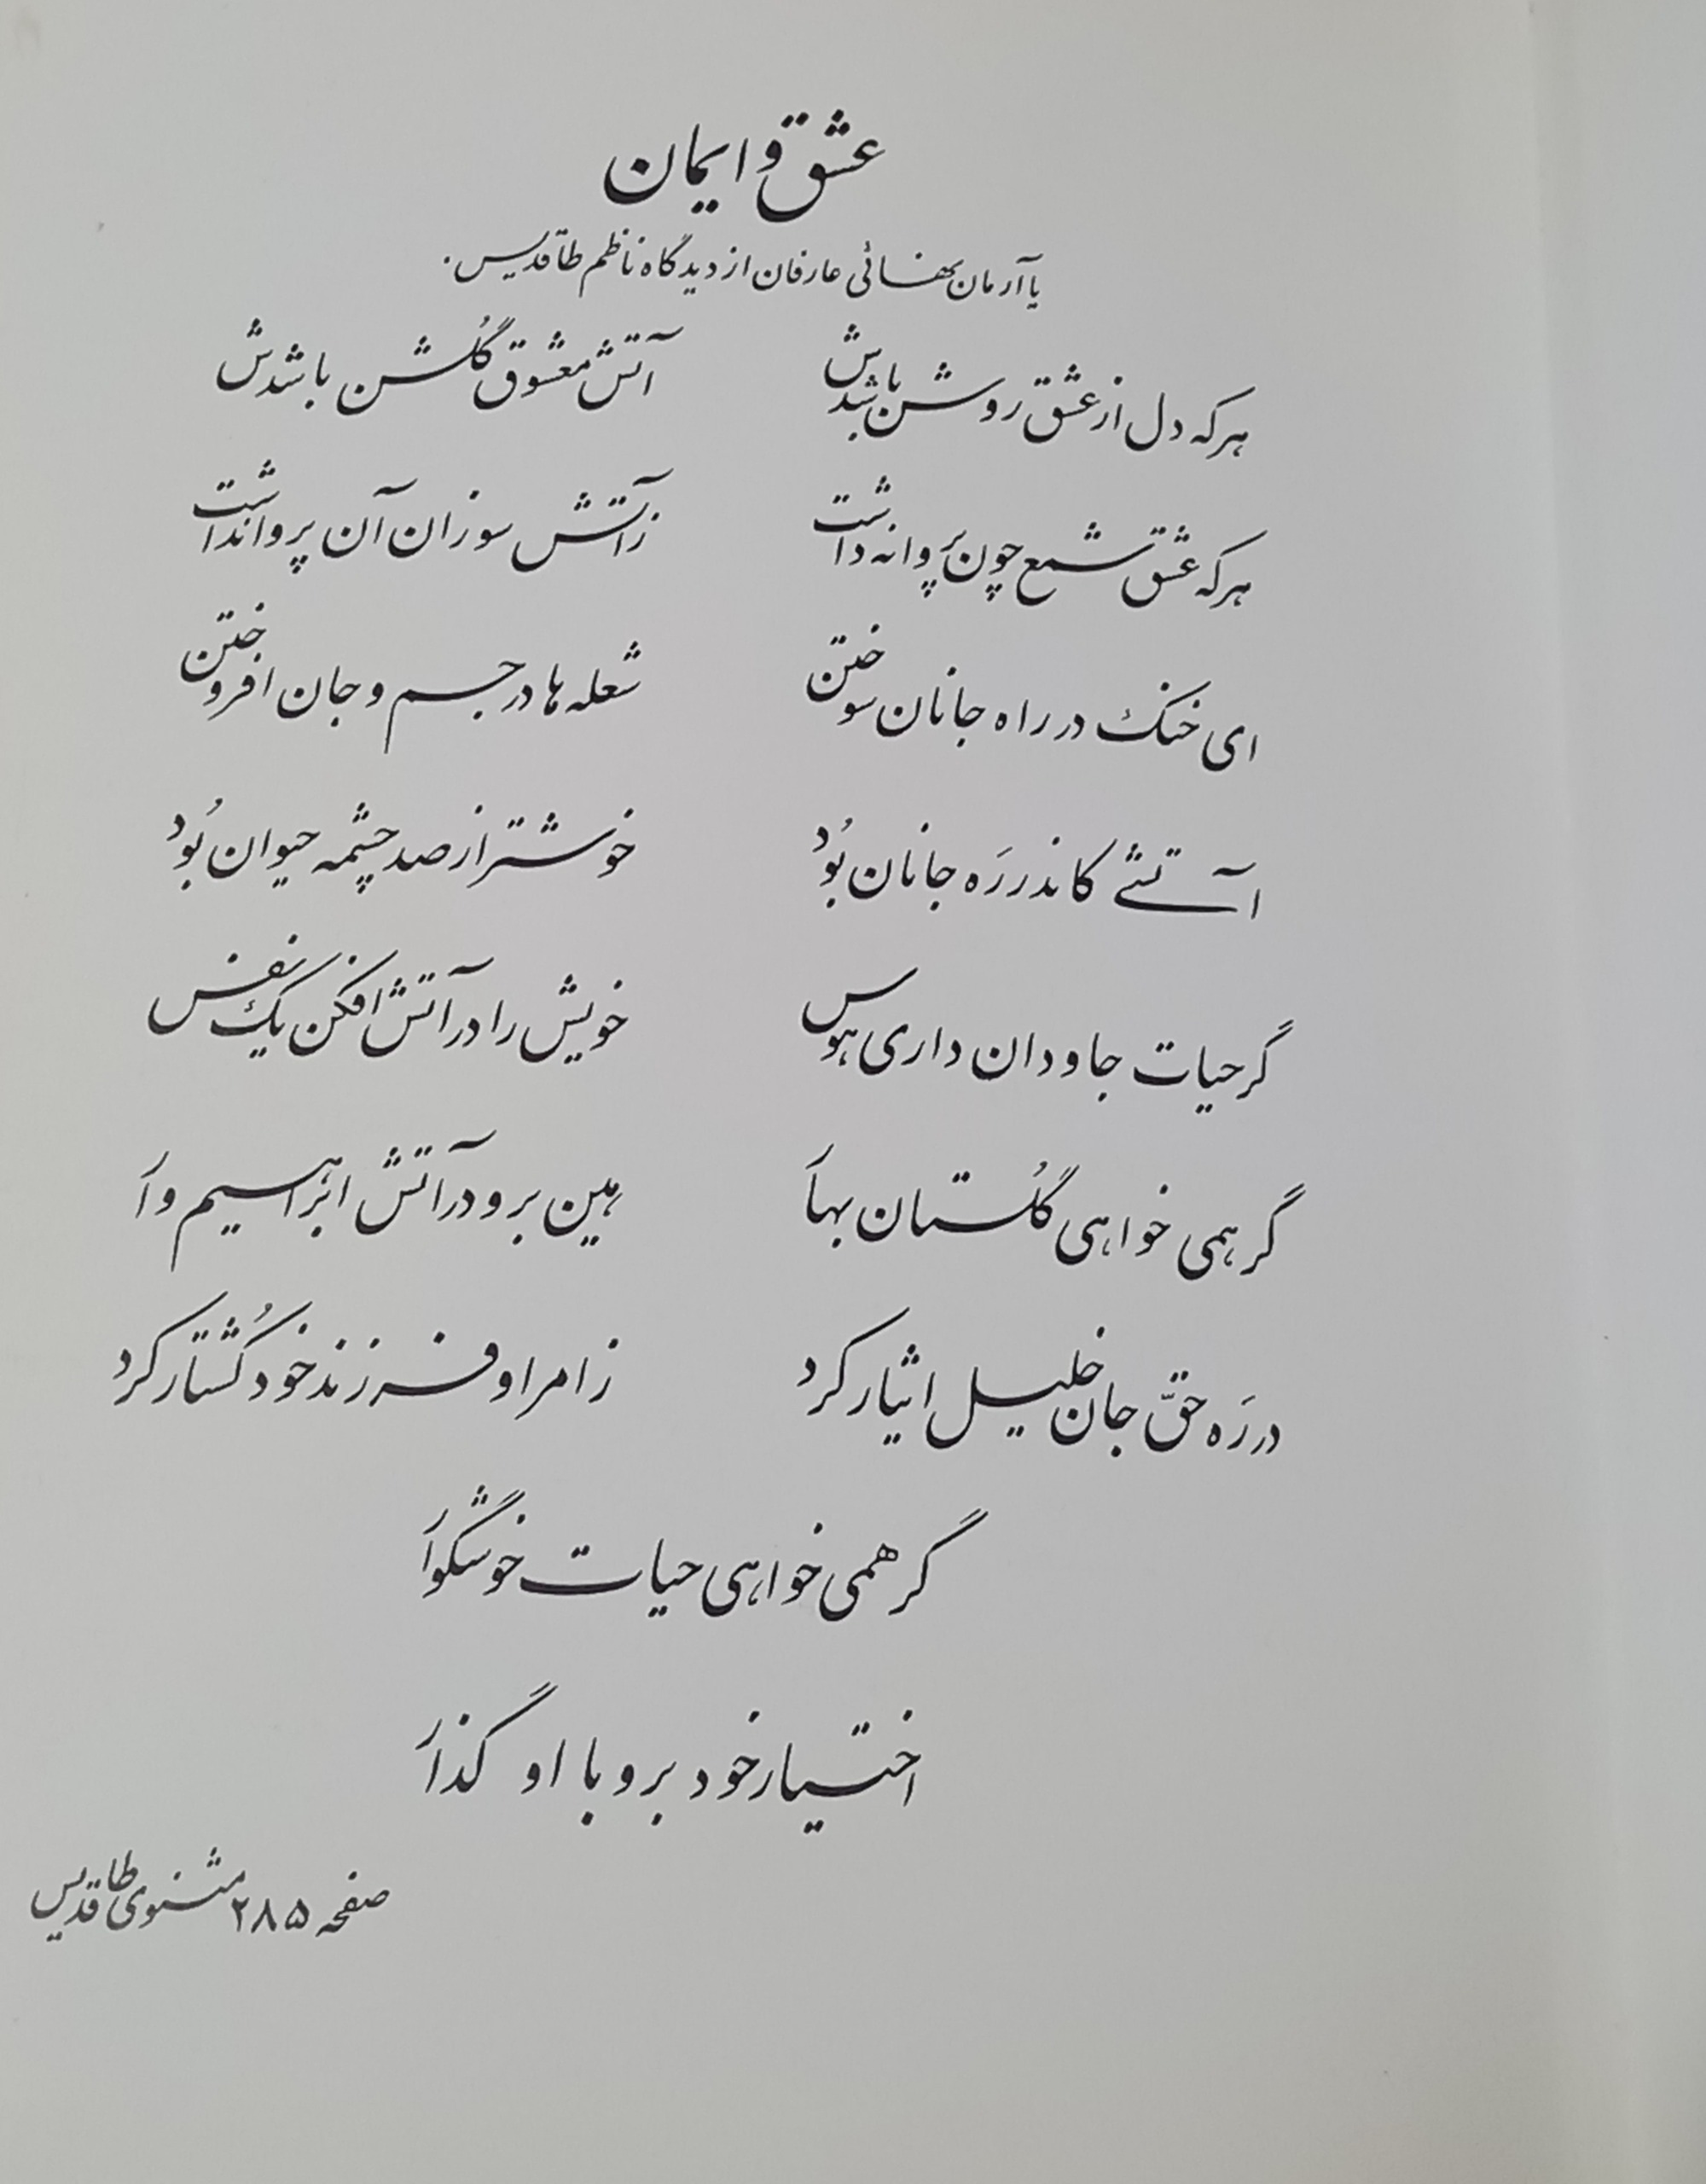 عشق و ایمان
یا آرمان نهائی عارفان از دیدگاه ناظم طاقدیس.
هر که دل از عشق روشن باشدش آتش معشوق گُلشن باشدش
هر که عشق شمع چون پَروانه داشت زآتش سوزان آن پروا نداشت
ای خنک در راه جانان سوختن شعله ها در جسم و جان افروختن
آتشے کاندر رَه جانان بُود خوشتر از صد چشمه حیوان بُود
گر حیات جاودان داری هوس خویش را در آتش افکن یک نفس
گر همی خواهی گُلستان بهار هین برو در آتش ابراهیم وار
در رَه حقّ جان خلیل ایثار کرد ز امر او فرزند خود کُشتار کرد
گر همی خواهی حیات خوشگوار
اختیار خود برو با او گذار
صفحه ۲۸۵ مثنوی طاقدیس